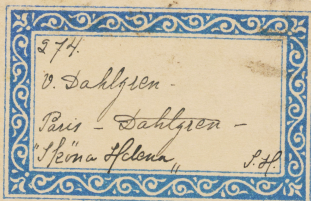 274.
V. Dahlgren -
Paris - Dahlgren -
"Sköna Helena" S. H.